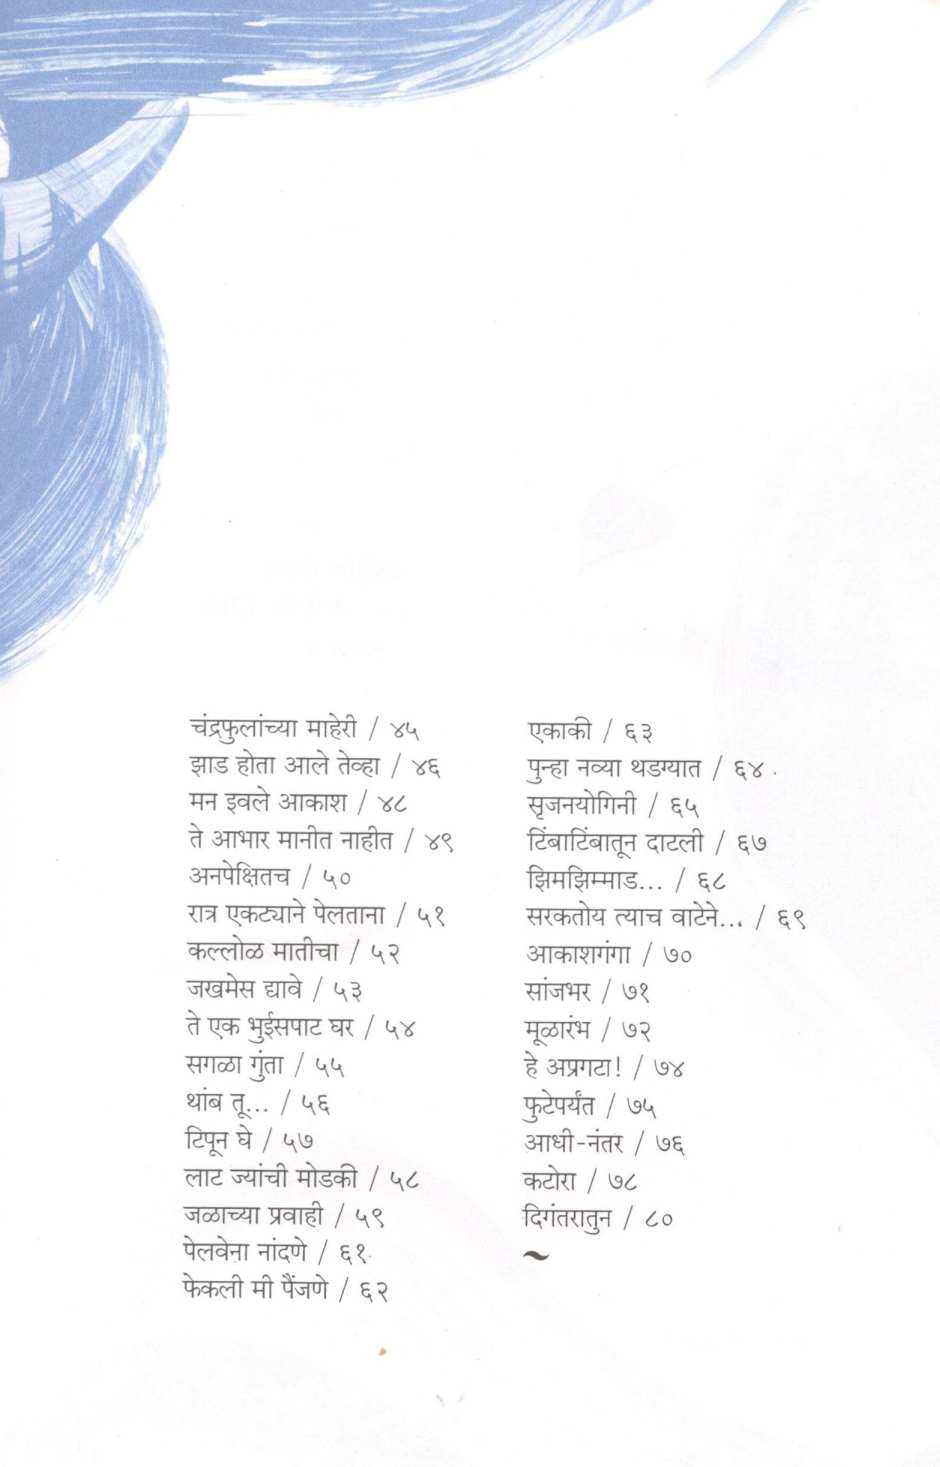 चंद्रफुलांच्या माहेरी / ४५
झाड होता आले तेव्हा / ४६
मन इवले आकाश / ४८
ते आभार मानीत नाहीत / ४९
अनपेक्षितच / ५०
रात्र एकट्याने पेलताना / ५१
कल्लोळ मातीचा / ५२
जखमेस द्यावे / ५३
ते एक भुईसपाट घर / ५४
सगळा गुंता / ५५
थांब तू... / ५६
टिपून घे / ५७
लाट ज्यांची मोडकी / ५८
जळाच्या प्रवाही / ५९
पेलवेना नांदणे / ६१
फेकली मी पैंजणे / ६२
एकाकी / ६३
पुन्हा नव्या थडग्यात / ६४
सृजनयोगिनी / ६५
टिंबाटिंबातून दाटली / ६७
झिमझिम्माड... / ६८
सरकतोय त्याच वाटेने... / ६९
आकाशगंगा / ७०
सांजभर / ७१
मूळारंभ / ७२
हे अप्रगटा! / ७४
फुटेपर्यंत / ७५
आधी-नंतर / ७६
कटोरा / ७८
दिगंतरातुन / ८०
~